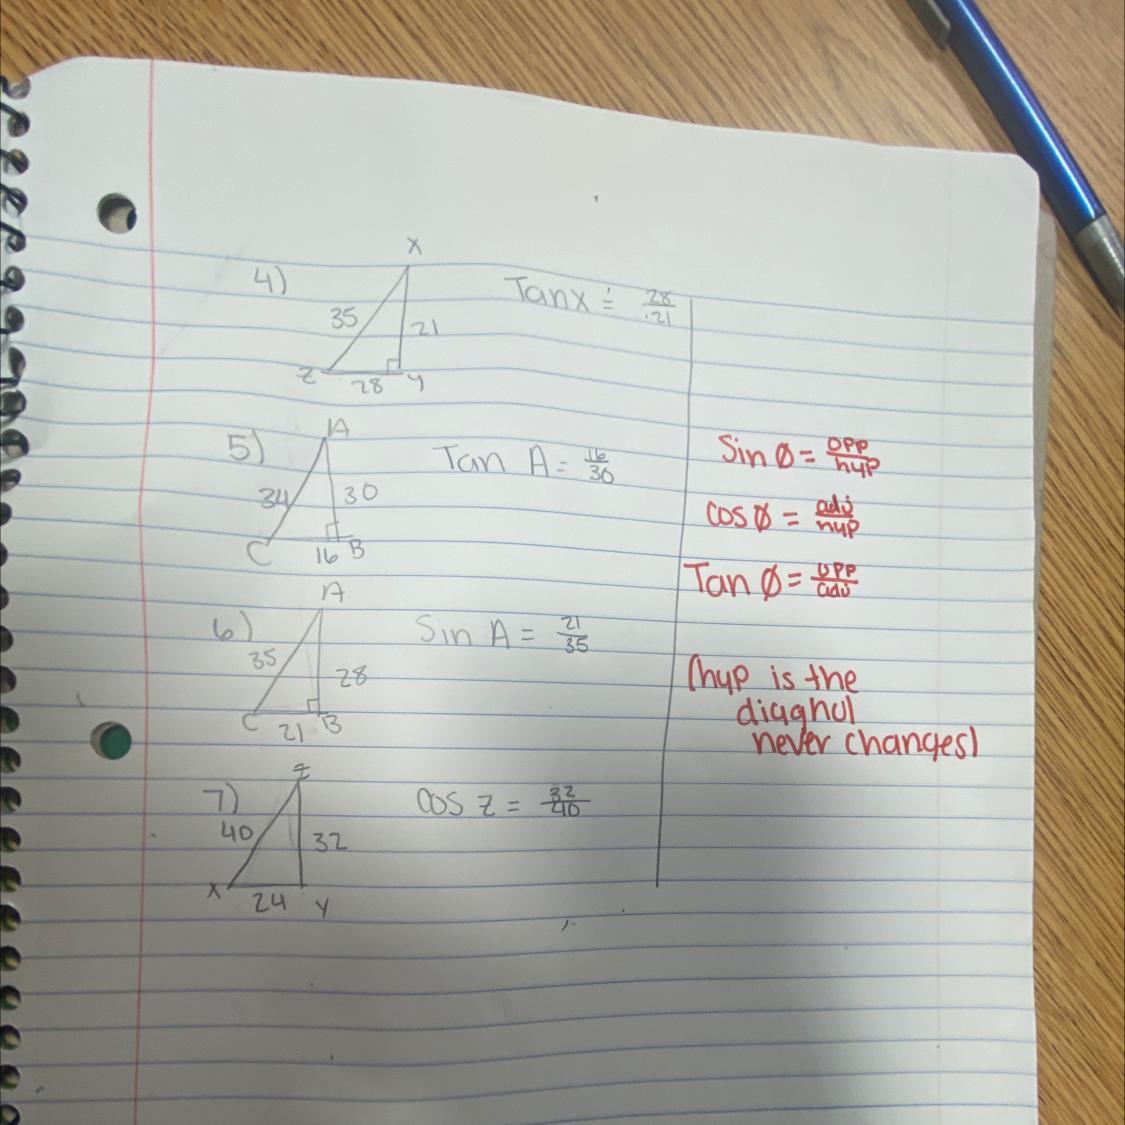 4)
X
35
21
Z
28
y
Tanx = 28/21
5)
A
34
30
C
16
B
Tan A = 16/30
6)
A
35
28
C
21
B
Sin A = 21/35
7)
Z
40
32
X
24
Y
cos z = 32/40
Sin Ø = opp/hyp
cos Ø = adj/hyp
Tan Ø = opp/adj
(hyp is the
never changes)